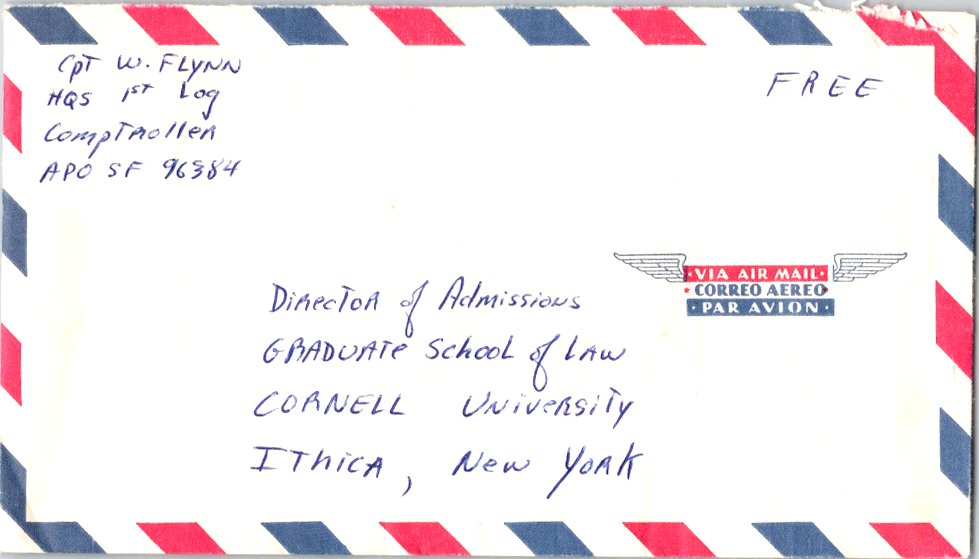 Cpt W. FLYNN
HQS 1ST Log
Comptroller
APO SF 96384
FREE
VIA AIR MAIL
CORREO AEREO
PAR AVION
Director of Admissions
GRADUATE School of LAW
CORNELL University
ITHICA, New York